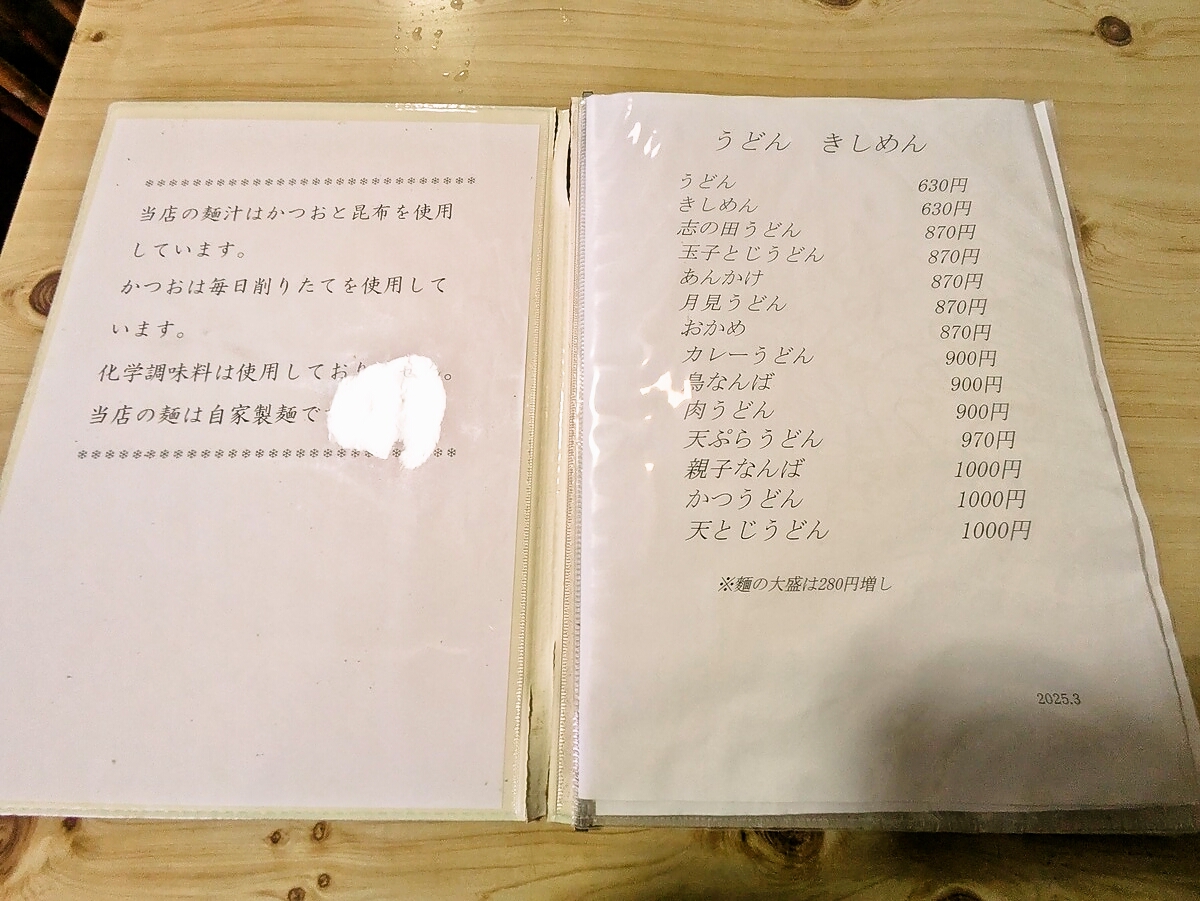 ❄❄❄❄❄❄❄❄❄❄❄❄❄❄❄❄❄❄❄❄❄❄❄❄❄❄❄❄
当店の麺汁はかつおと昆布を使用
しています。
かつおは毎日削りたてを使用して
います。
化学調味料は使用しており。
当店の麺は自家製麺で
❄❄❄❄❄❄❄❄❄❄❄❄❄❄❄❄❄❄❄❄❄❄❄❄❄❄❄❄
うどん　きしめん
うどん 630円
きしめん 630円
志の田うどん 870円
玉子とじうどん 870円
あんかけ 870円
月見うどん 870円
おかめ 870円
カレーうどん 900円
鳥なんば 900円
肉うどん 900円
天ぷらうどん 970円
親子なんば 1000円
かつうどん 1000円
天とじうどん 1000円
※麺の大盛は280円増し
2025.3